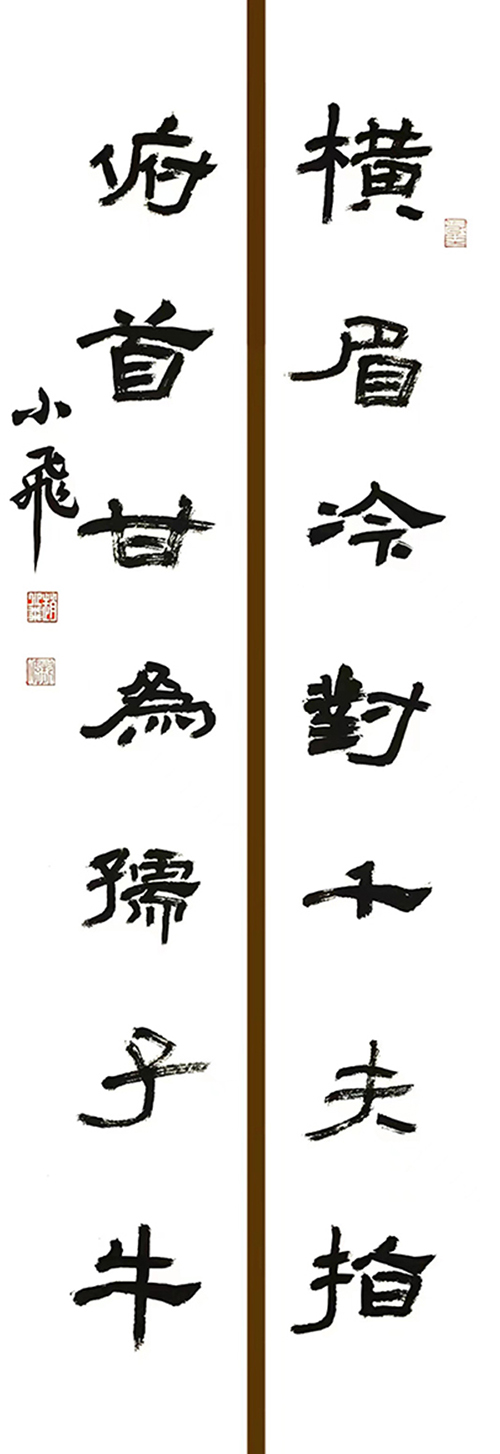 横眉冷對千夫指
俯首甘為孺子牛
小飛